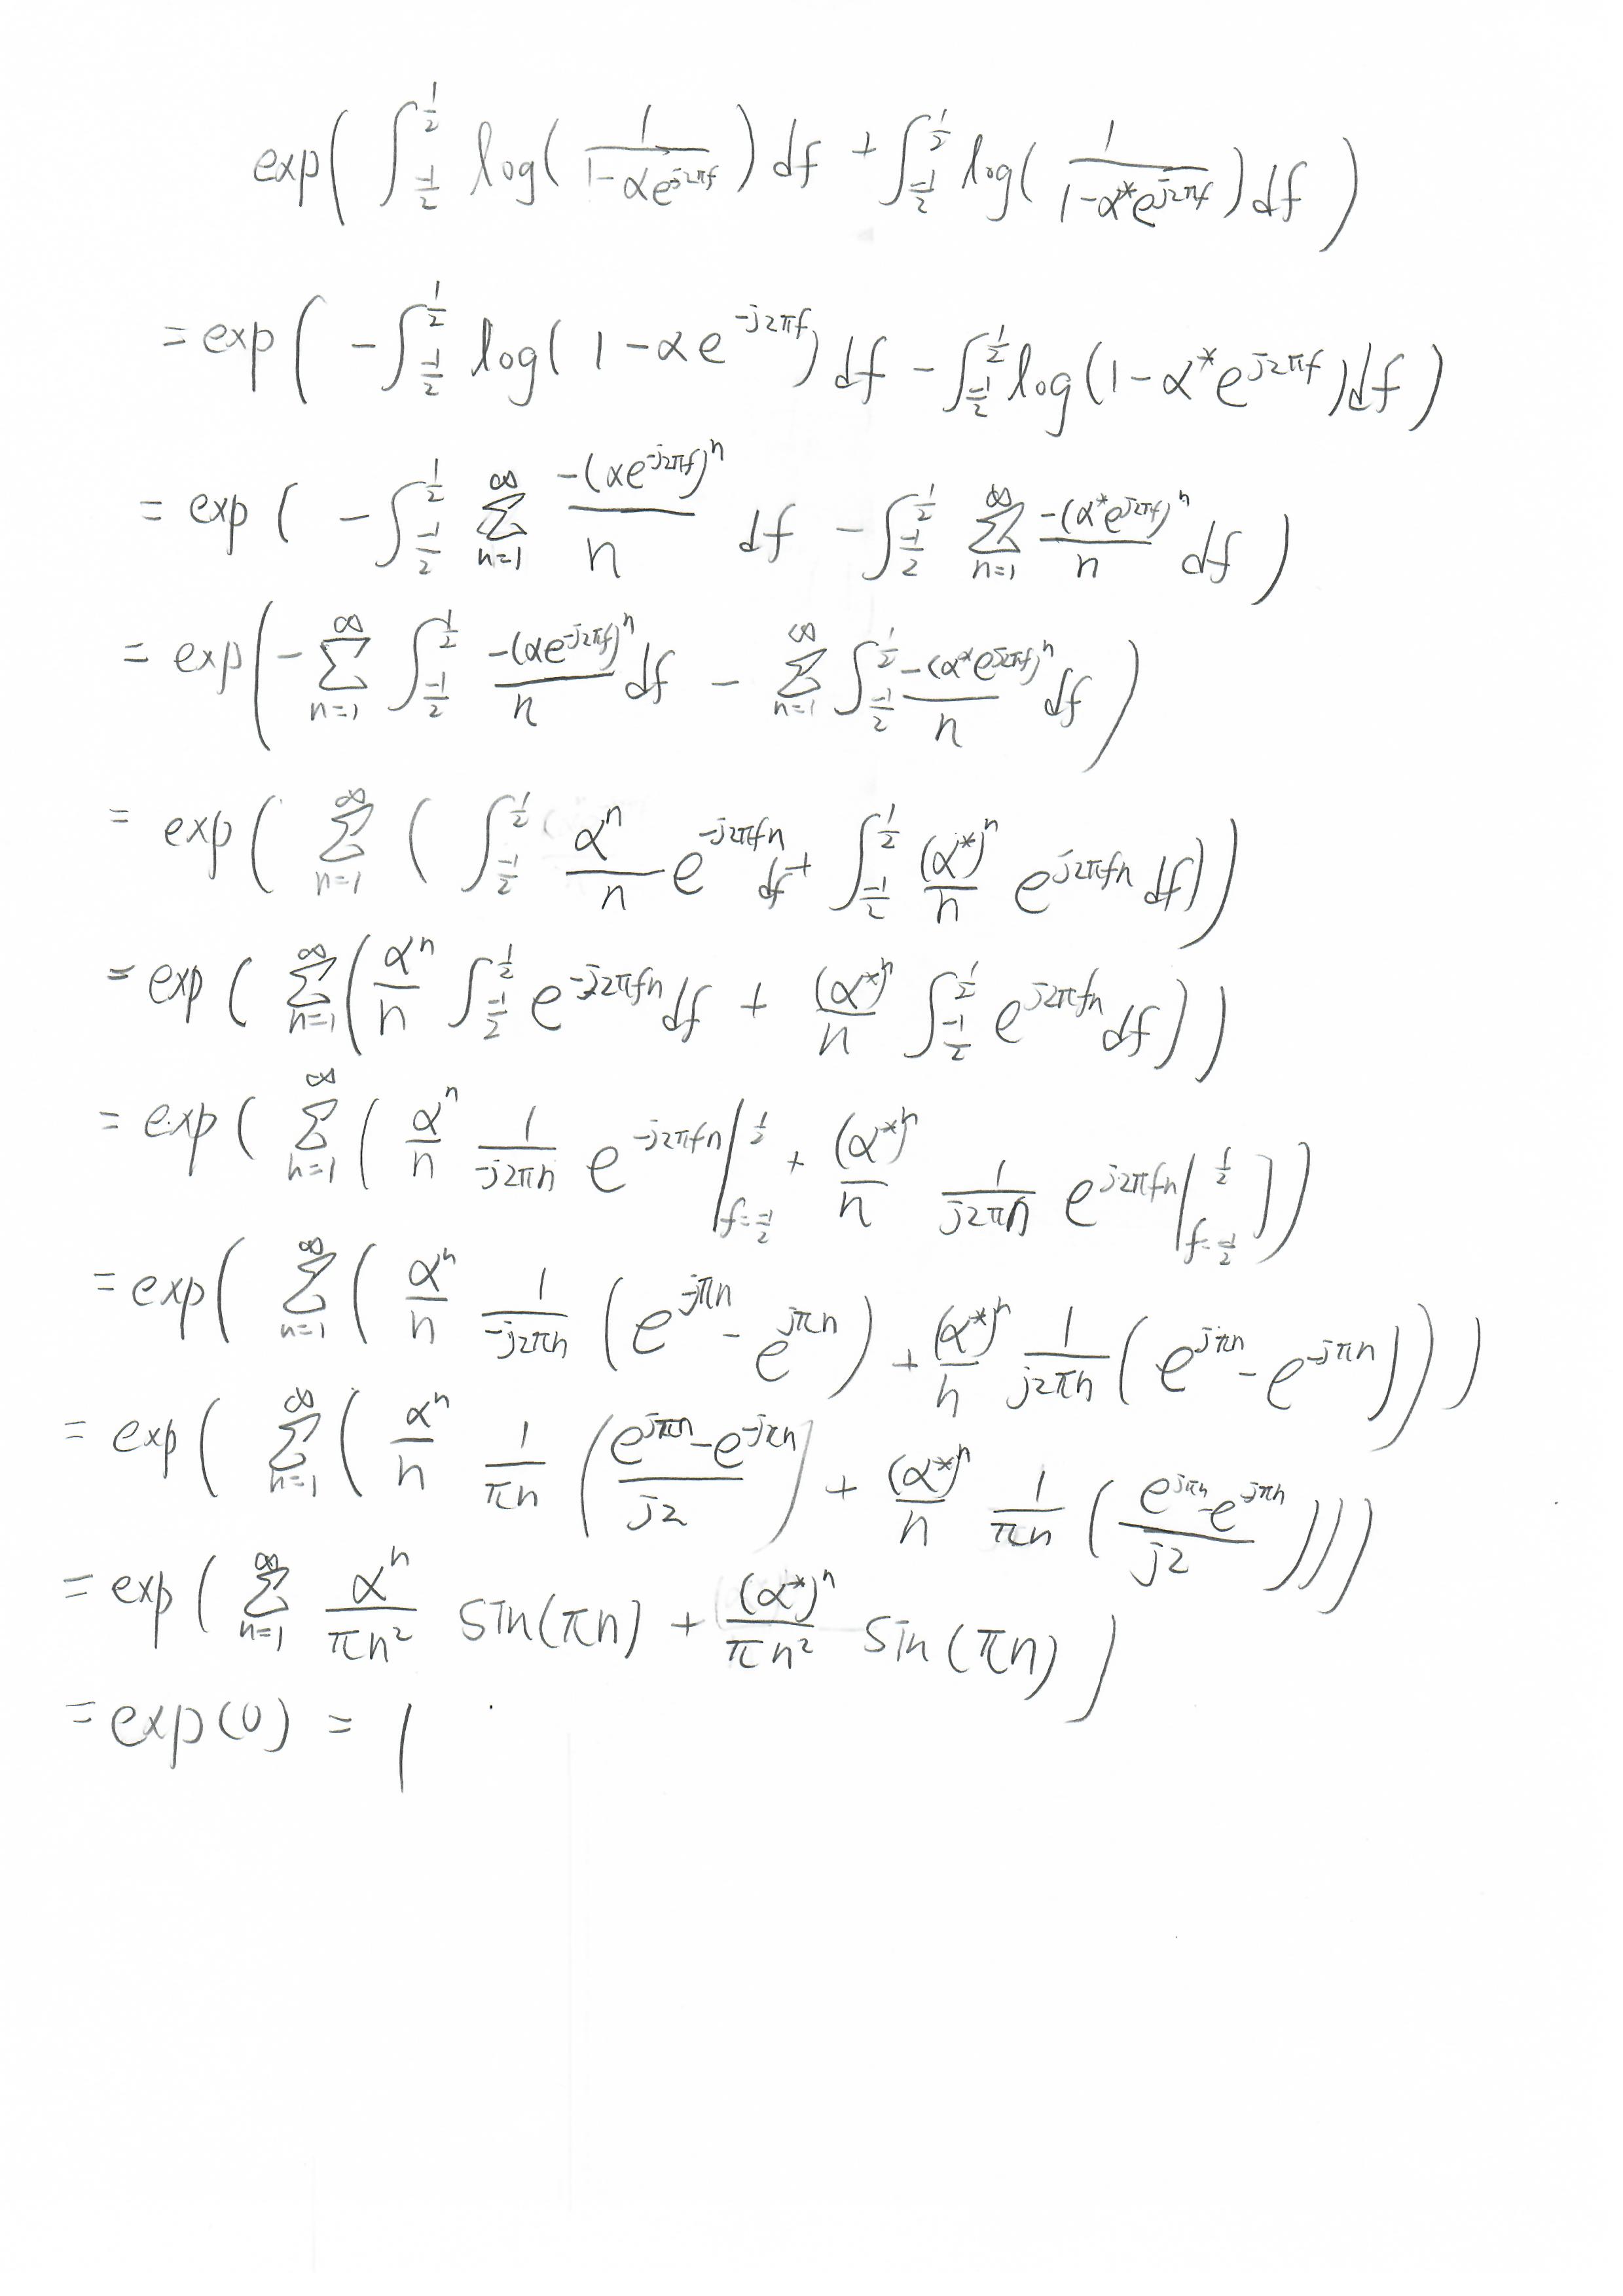 exp( ∫_{-1/2}^{1/2} log( 1/(1-αe^{-j2πf}) ) df + ∫_{-1/2}^{1/2} log( 1/(1-α*e^{j2πf}) ) df )
= exp( -∫_{-1/2}^{1/2} log( 1-αe^{-j2πf} ) df - ∫_{-1/2}^{1/2} log(1-α*e^{j2πf}) df )
= exp( -∫_{-1/2}^{1/2} ∑_{n=1}^{∞} -(αe^{-j2πf})^n/n df - ∫_{-1/2}^{1/2} ∑_{n=1}^{∞} -(α*e^{j2πf})^n/n df )
= exp( -∑_{n=1}^{∞} ∫_{-1/2}^{1/2} -(αe^{-j2πf})^n/n df - ∑_{n=1}^{∞} ∫_{-1/2}^{1/2} -(α*e^{j2πf})^n/n df )
= exp( ∑_{n=1}^{∞} ( ∫_{-1/2}^{1/2} α^n/n e^{-j2πfn} df + ∫_{-1/2}^{1/2} (α*)^n/n e^{j2πfn} df ) )
= exp( ∑_{n=1}^{∞} ( α^n/n ∫_{-1/2}^{1/2} e^{-j2πfn} df + (α*)^n/n ∫_{-1/2}^{1/2} e^{j2πfn} df ) )
= exp( ∑_{n=1}^{∞} ( α^n/n 1/(-j2πn) e^{-j2πfn} |_{f=-1/2}^{1/2} + (α*)^n/n 1/(j2πn) e^{j2πfn} |_{f=-1/2}^{1/2} ) )
= exp( ∑_{n=1}^{∞} ( α^n/n 1/(-j2πn) ( e^{-jπn} - e^{jπn} ) + (α*)^n/n 1/(j2πn) ( e^{jπn} - e^{-jπn} ) ) )
= exp( ∑_{n=1}^{∞} ( α^n/n 1/(πn) ( (e^{jπn} - e^{-jπn})/(j2) ) + (α*)^n/n 1/(πn) ( (e^{jπn} - e^{-jπn})/(j2) ) ) )
= exp( ∑_{n=1}^{∞} α^n/(πn²) sin(πn) + (α*)^n/(πn²) sin(πn) )
= exp(0) = 1